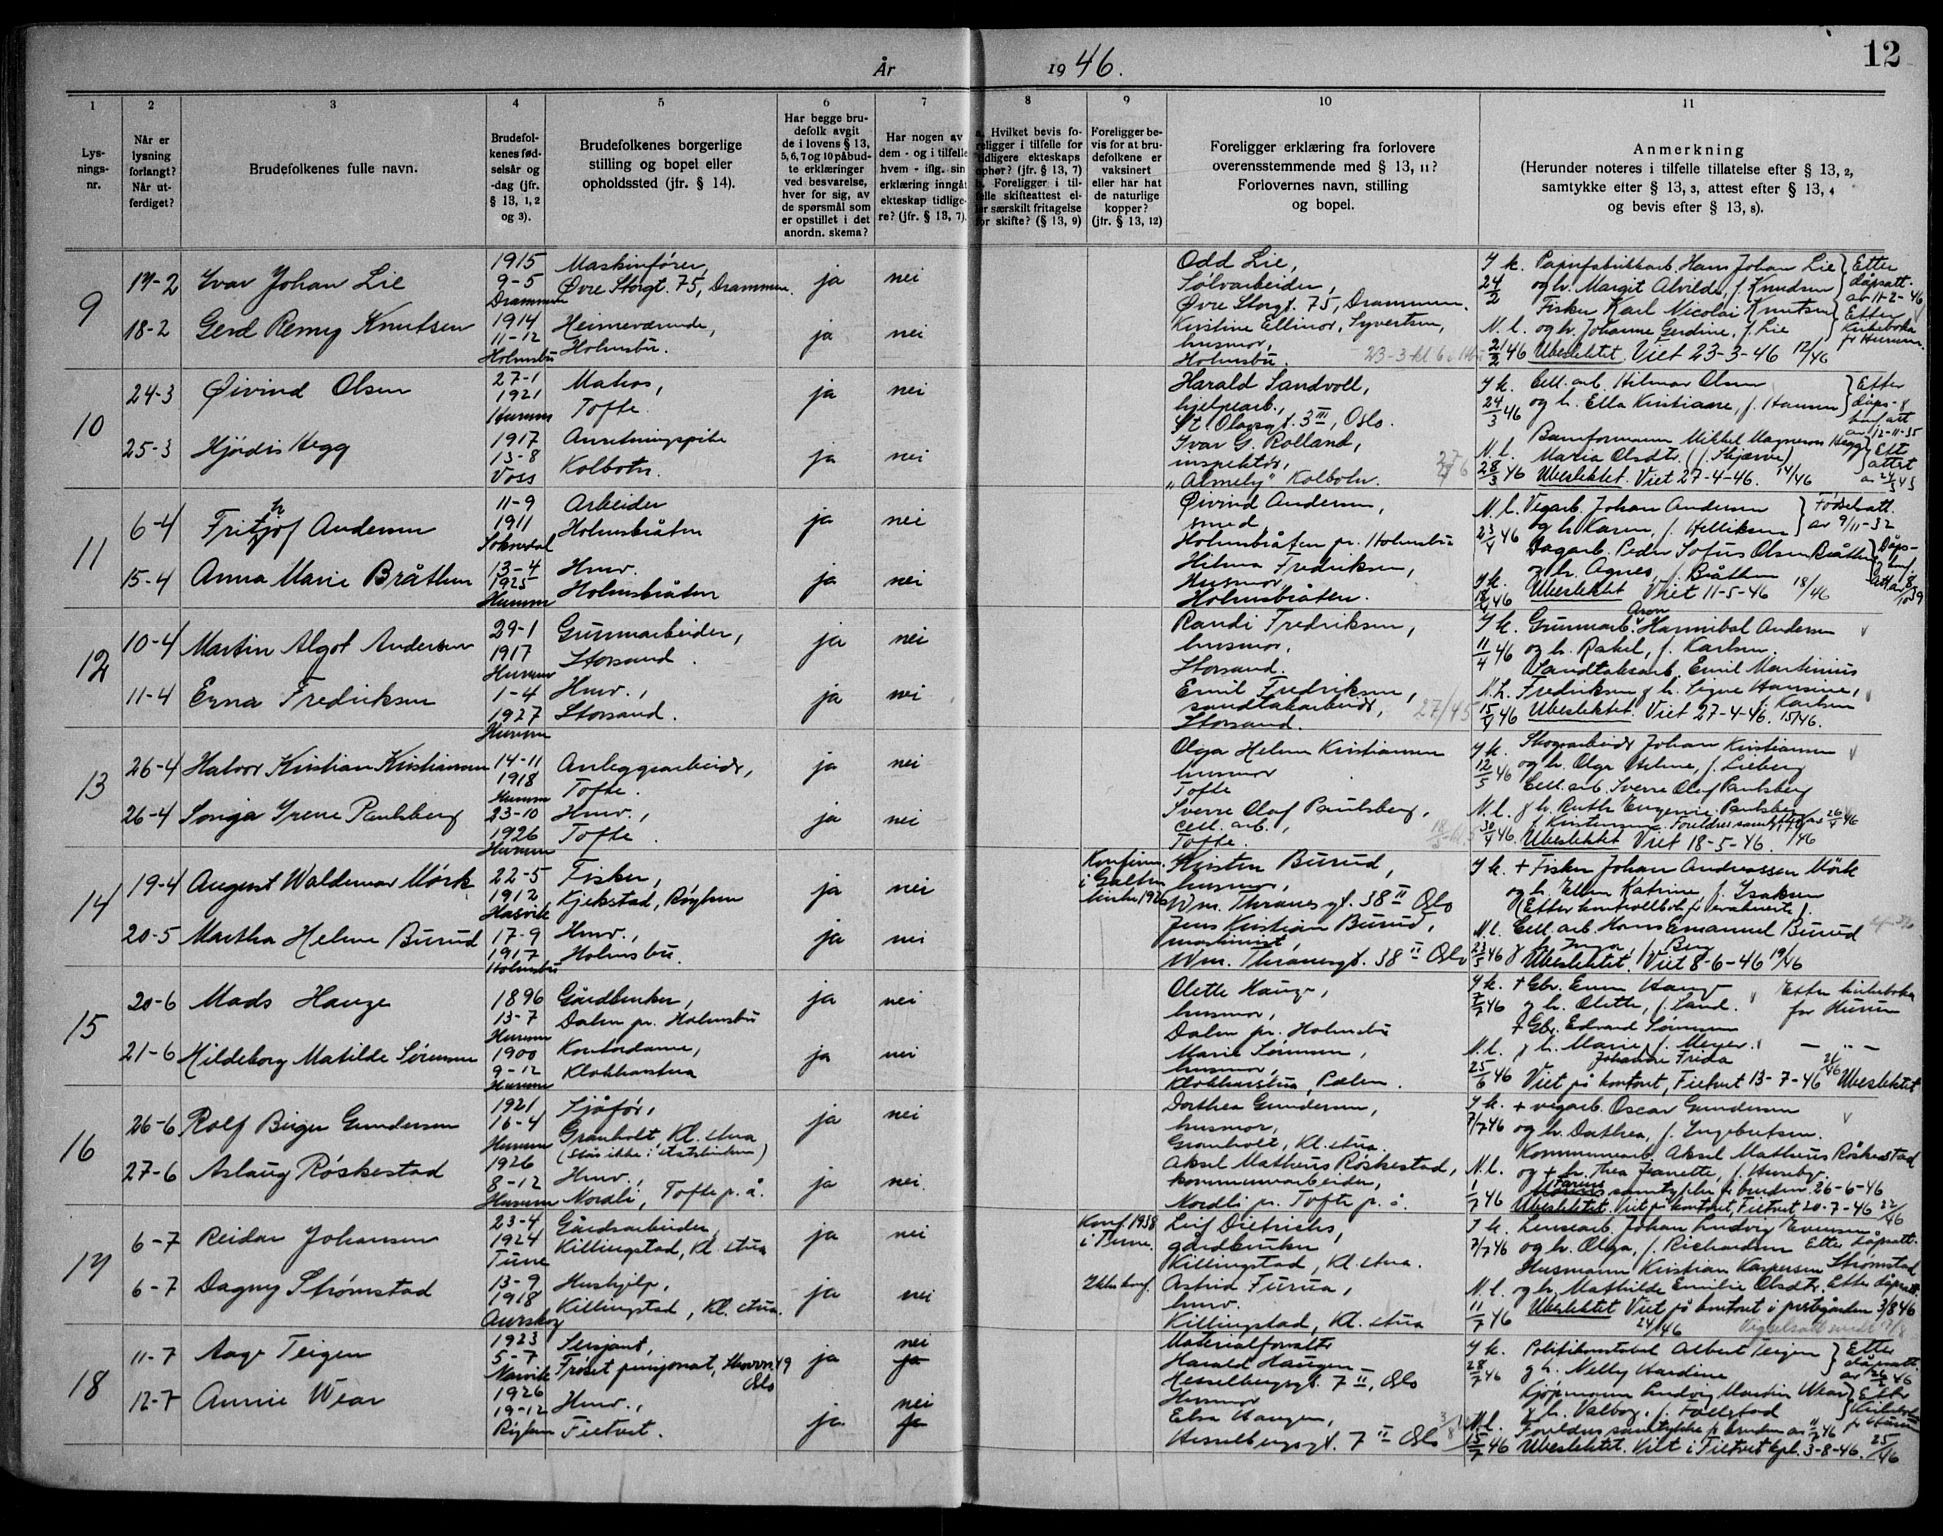 År 1946. 12
1 2 3 4 5 6 7 8 9 10 11
Lys-
nings-
nr.
Når er
lysning
forlangt?
Når ut-
ferdiget?
Brudefolkenes fulle navn.
Brudefol-
kenes fød-
selsår og
-dag (jfr.
§ 13, 1, 2
og 3).
Brudefolkenes borgerlige
stilling og bopel eller
opholdssted (jfr. § 14).
Har begge bru-
defolk avgit
de i lovens § 13,
5, 6, 7 og 10 påbud-
te erklæringer
ved besvarelse,
hver for sig, av
de spørsmål som
er opstillet i det
anordn. skema?
Har nogen av
dem - og i tilfelle
hvem - iflg. sin
erklæring inngått
ekteskap tidlige-
re? (jfr. § 13, 7).
a. Hvilket bevis fo-
religger i tilfelle for
tidligere ekteskaps
ophør? (jfr. § 13, 7)
b. Foreligger i til-
felle skifteattest el-
ler særskilt fritagelse
for skifte? (§ 13, 9)
Foreligger be-
vis for at bru-
defolkene er
vaksinert
eller har hat
de naturlige
kopper?
(jfr. § 13, 12)
Foreligger erklæring fra forlovere
overensstemmende med § 13, 11?
Forlovernes navn, stilling
og bopel.
Anmerkning
(Herunder noteres i tilfelle tillatelse efter § 13, 2,
samtykke efter § 13, 3, attest efter § 13, 4
og bevis efter § 13, 8).
9
17-2 Ivar Johan Lie
1915
9-5
Drammen
Maskinfører,
Øvre Storgt. 75, Drammen.
ja nei
18-2 Gerd Remy Knutsen
1914
11-12
Holmsbu
Heimeværende,
Holmsbu.
ja nei
Odd Lie,
Sølvarbeider,
Øvre Storgt. 75, Drammen.
Kristine Ellinor Syvertsen,
husmor,
Holmsbu
Y k. Papirfabrikkarb. Hans Johan Lie
24/2 og h. Margit Alvilde, f. Knudsen
Etter
dåpsatt.
av 11-2-46
Fisker Karl Nicolai Knutsen
N. l. og h. Johanne Gerdine, f. Lie
Etter
Kirkeboka
fr Hurum.
21/2 46 Ubeslektet. Viet 23-3-46 12/46
10
24-3 Øivind Olsen
27-1
1921
Hurum
Matros,
Tofte.
ja nei
25-3 Hjørdis Hegg
1917
13-8
Voss
Anretningspike
Kolbotn.
ja nei
Harald Sandvoll,
hjelpearb.,
St. Olavsgt. 3 III, Oslo.
Ivar G. Rolland,
inspektør,
"Almely" Kolbotn.
Y k. Cell. arb. Hilmar Olsen
24/3 46 og h. Ella Kristiane, f. Hansen
N. l. Maria Olsdtr. (f. Skjerve)
28/3 46 Ubeslektet. Viet 27-4-46. 14/46
11
6-4 Frithjof Andersen
11-9
1911
Sokndal
Arbeider
Holmsbråten
ja nei
15-4 Anna Marie Bråthen
13-4
1925
Hurum
Hmv.
Holmsbråten
ja nei
Øivind Andersen,
smed,
Holmsbråten pr. Holmsbu
Hilma Fredriksen,
Husmor,
Holmsbråten.
N. l. Vegarb. Johan Andersen
23/4 46 og h. Karen, f. Helliksen
Fødselsatt.
av 9/11-32
Dagarb. Peder Sofus Olsen Bråthen
og h. Agnes, f. Bråthen
Ubeslektet Viet 11-5-46 18/46
12
10-4 Martin Algot Andersen
29-1
1917
Hurum
Grunnarbeider,
Storsand.
ja nei
11-4 Erna Fredriksen
1-4
1927
Hurum
Hmv.,
Storsand.
ja nei
Randi Fredriksen,
husmor,
Storsand.
Emil Fredriksen,
sandtakarbeider,
Storsand.
Y k. Grunnarb. Aron Hannibal Andersen
11/4 46 og h. Rakel, f. Karlsen.
Sandtaksarb. Emil Martinius
N. L. Fredriksen og h. Signe Hansine,
f. Karlsen
15/4 46 Ubeslektet. Viet 27-4-46. 15/46.
13
26-4 Halvor Kristian Kristiansen
14-11
1918
Hurum
Anleggsarbeider,
Tofte.
ja nei
26-4 Sonja Irene Paulsberg
23-10
1926
Hurum
Hmv.,
Tofte.
ja nei
Olga Helene Kristiansen
husmor
Tofte
Sverre Olaf Paulsberg,
cell. arb.,
Tofte.
Y k. Skogsarbeider Johan Kristiansen
12/5 46 og h. Olga Helene, f. Lieberg
Cell. arb. Sverre Olaf Paulsberg
N. l. og h. Ruth Eugenie Paulsberg
30/4 46. Ubeslektet Viet 18-5-46. 17/46
14
19-4 August Waldemar Mörk
22-5
1912
Hasvik
Fisker,
Kjekstad, Røyken
ja nei
20-5 Martha Helene Burud
17-9
1917
Holmsbu
Hmv.,
Holmsbu.
ja nei
Kirsten Burud,
husmor,
Wm. Thranes gt. 38 II Oslo
Jens Kristian Burud,
maskinist,
Wm. Thranesgt. 38 II Oslo
Y k. + Fisker Johan Andreassen Mörk
og h. Ellen Katrine, f. Isaksen
N. l. Cell. arb. Hans Emanuel Burud
og h. Inga, f. Berg
23/5 46 Ubeslektet. Viet 8-6-46 19/46
15
20-6 Mads Hauge
1896
13-7
Hurum
Gårdbruker,
Dalen pr. Holmsbu
ja nei
21-6 Hildeborg Matilde Sørensen
1900
9-12
Hurum
Kontordame,
Klokkarstua
ja nei
Olette Hauge,
husmor,
Dalen pr. Holmsbu
Marie Sørensen,
husmor,
Klokkarstua, Dalen.
Y k. + Gbr. Even Hauge
7/7 46 og h. Olette, f. Sand.
Etter kirkeboka
for Hurum
+ Gbr. Edvard Sørensen
N. l. og h. Marie f. Meyer.
Johanne Frida
25/6 46 Viet på kontoret, Filtvet 13-7-46 21/46 Ubeslektet
16
26-6 Rolf Birger Gundersen
1921
16-4
Hurum
Sjåfør,
Granholt, Kl. stua
ja nei
27-6 Aslaug Röskestad
1926
8-12
Hurum
Hmv.,
Nordli, Tofte p. å.
ja nei.
Dorthea Gundersen,
husmor,
Granholt, Kl. stua.
Aksel Matheus Röskestad,
kommunearbeider,
Nordli pr. Tofte p. å.
Y k. + vegarb. Oscar Gundersen
7/7 46 og h. Dorthea, f. Ingebretsen.
Kommunearb. Aksel Matheus Röskestad
N. l. og + h. Thea Jeanette, f. Huseby.
1/7 46 Farens samtykke f. bruden 26-6-46
Ubeslektet. Viet på kontoret, Filtvet 20-7-46 22/46
17
6-7 Reidar Johansen
23-4
1924
Tune
Gårdsarbeider,
Killingstad, Kl. stua
ja nei
6-7 Dagny Strømstad
13-9
1918
Aurskog
Hushjelp,
Killingstad, Kl. stua.
ja nei
Konf. 1938
i Tune.
Ikke konf.
Leif Dietrichs,
gårdbruker
Killingstad, Kl. stua.
Astrid Furua,
hmv.
Killingstad, Kl. stua
Y k. Lensearb. Johan Ludvig Evensen
7/7 46 og h. Olga, f. Richardsen Etter dåpsatt.
Husmann Kristian Kaspersen Strømstad
N. l. og h. Mathilde Emilie Olsdtr. Etter dåpsatt.
11/7 46 Ubeslektet Viet på kontoret i prestegården 3/8 46
24/46
18
11-7 Aage Teigen
1923
5-7
Narvik
Sersjant,
Trøset pensjonat,
Oslo
ja
nei
ja
12-7 Annie Wear
1926
19-12
Røyken
Hmv.,
Filtvet.
ja
nei
ja
Materialforvalter
Harald Haugen
Hesselbergsgt. 7 II, Oslo
Husmor
Elsa Haugen,
Hesselbergsgt. 7 II Oslo
Y k. Politikonstabel Albert Teigen
28/7 46 og h. Nelly Hardine
Etter
dåpsatt.
Kjøpmann Ludvig Martin Wear
og h. Valborg, f. Foelstad
N. l. Foreldres samtykke f. bruden av 11/7 46
15/7 46 Ubeslektet. Viet i Filtvet kpl. 3-8-46. 25/46